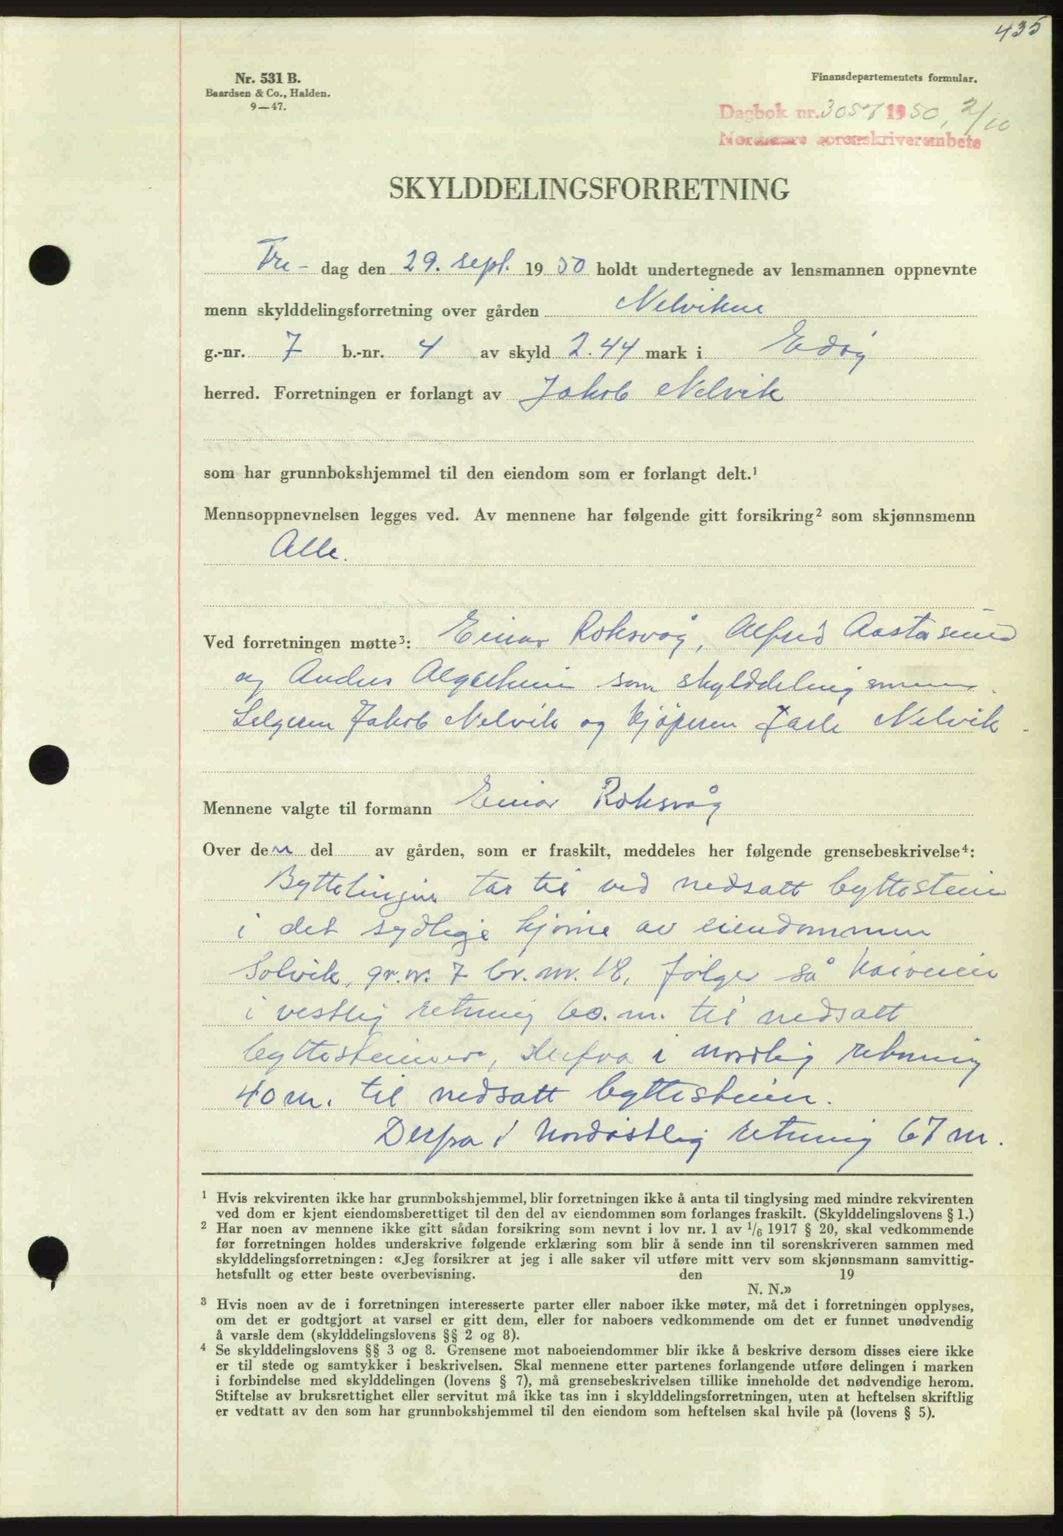 435
Nr. 531 B.
Baardsen & Co., Halden.
9—47.
Finansdepartementets formular.
Dagbok nr. 3057 1950, 2/10
Nordmøre sorenskriverembete
SKYLDDELINGSFORRETNING
Fre- dag den 29. sept. 1950 holdt undertegnede av lensmannen oppnevnte
menn skylddelingsforretning over gården Nelvikne
g.-nr. 7 b.-nr. 4 av skyld 2.44 mark i Edøy
herred. Forretningen er forlangt av Jakob Nelvik
som har grunnbokshjemmel til den eiendom som er forlangt delt.¹
Mennsoppnevnelsen legges ved. Av mennene har følgende gitt forsikring² som skjønnsmenn
Alle.
Ved forretningen møtte³: Einar Roksvåg, Alfred Aastasund
og Anders som skylddelingsmenn.
Selgeren Jakob Nelvik og kjøperen Jarle Nelvik.
Mennene valgte til formann Einar Roksvåg
Over den del av gården, som er fraskilt, meddeles her følgende grensebeskrivelse⁴:
Byttelinjen tar til ved nedsatt byttestein
i det sydlige hjørne av eiendommen
Solvik, gr.nr. 7 br.nr. 18, følger så kaiveien
i vestlig retning 60.m. til nedsatt
byttestein, derfra i nordlig retning
40 m. til nedsatt byttestein.
Derfra i Nordøstlig retning 67 m.
¹ Hvis rekvirenten ikke har grunnbokshjemmel, blir forretningen ikke å anta til tinglysing med mindre rekvirenten
ved dom er kjent eiendomsberettiget til den del av eiendommen som forlanges fraskilt. (Skylddelingslovens § 1.)
² Har noen av mennene ikke gitt sådan forsikring som nevnt i lov nr. 1 av 1/6 1917 § 20, skal vedkommende
før forretningen holdes underskrive følgende erklæring som blir å sende inn til sorenskriveren sammen med
skylddelingsforretningen: «Jeg forsikrer at jeg i alle saker vil utføre mitt verv som skjønnsmann samvittig-
hetsfullt og etter beste overbevisning. den 19
N. N.»
³ Hvis noen av de i forretningen interesserte parter eller naboer ikke møter, må det i forretningen opplyses,
om det er godtgjort at varsel er gitt dem, eller for naboers vedkommende om det er funnet unødvendig
å varsle dem (skylddelingslovens §§ 2 og 8).
⁴ Se skylddelingslovens §§ 3 og 8. Grensene mot naboeiendommer blir ikke å beskrive dersom disses eiere ikke
er til stede og samtykker i beskrivelsen. Skal mennene etter partenes forlangende utføre delingen i marken
i forbindelse med skylddelingen (lovens § 7), må grensebeskrivelsen tillike inneholde det nødvendige herom.
Stiftelse av bruksrettighet eller servitut må ikke tas inn i skylddelingsforretningen, uten at heftelsen skriftlig
er vedtatt av den som har grunnbokshjemmel til den eiendom som heftelsen skal hvile på (lovens § 5).